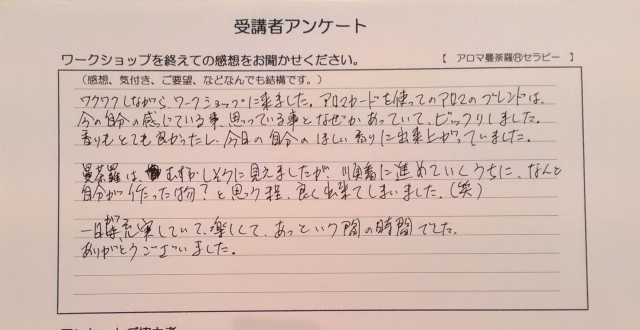 受講者アンケート
ワークショップを終えての感想をお聞かせください。 【 アロマ曼荼羅Ⓡセラピー 】
(感想、気付き、ご要望、などなんでも結構です。)
ワクワクしながら、ワークショップに来ました。アロマカードを使ってのアロマのブレンドは、
今の自分の感じている事、思っている事となぜかあっていて、ビックリしました。
香りもとても良かったし、今日の自分のほしい香りに出来上がっていました。
曼荼羅は、むずかしそうに見えましたが、順番に進めていくうちに、なんと
自分が作った物?と思う程、良く出来てしまいました。(笑)
一日が充実していて、楽しくて、あっという間の時間でした。
ありがとうございました。